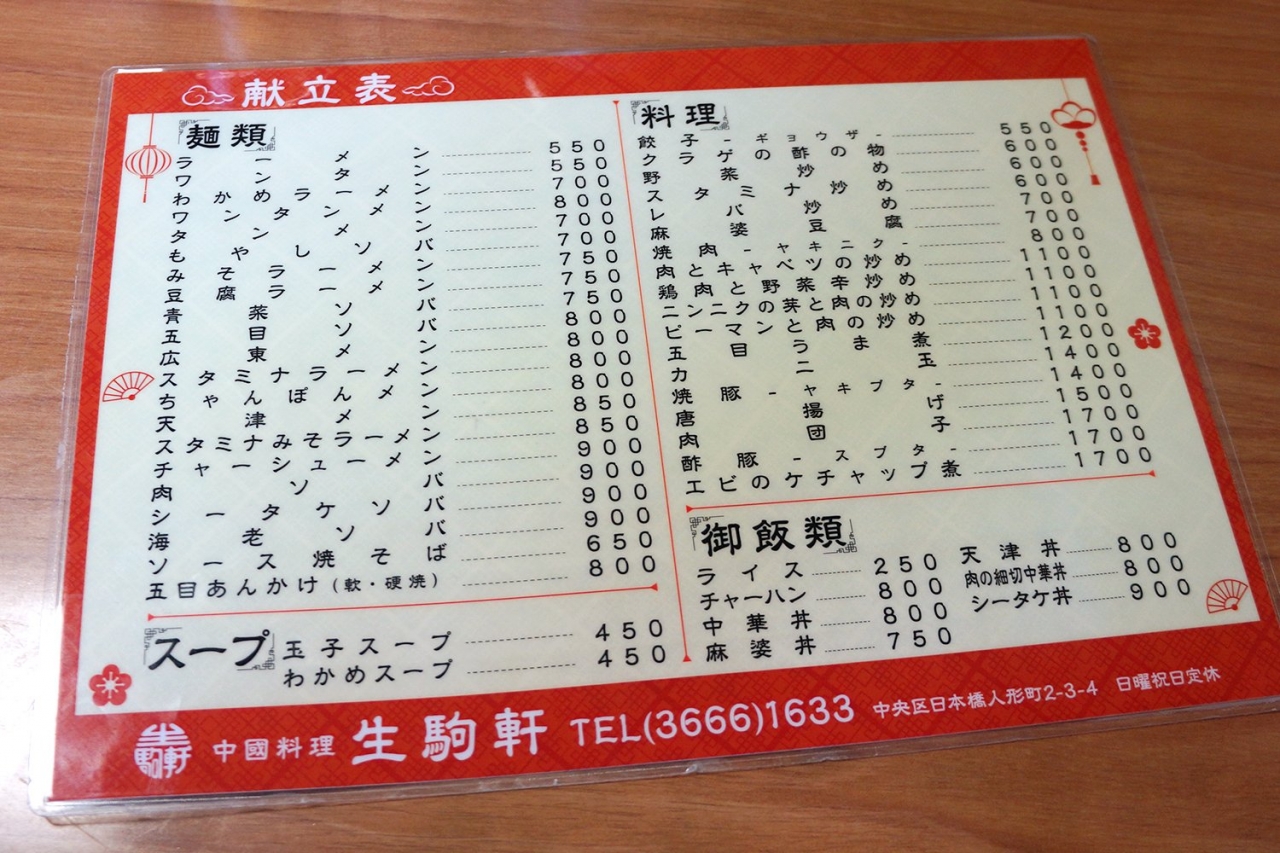 献立表
麺類
ラーメン 550
ワンタン 500
わかめラーメン 700
ワンタンメン 800
タンメン 700
もやしソバ 700
みそラーメン 750
豆腐ラーメン 750
青菜ソバ 750
五目ソバ 800
広東メン 800
スタミナラーメン 800
ちゃんぽんメン 800
天津メン 850
スタミナみそラーメン 850
チャーシューメン 900
肉ソバ 900
シータケソバ 900
海老ソバ 900
ソース焼そば 650
五目あんかけ(軟・硬焼) 800
スープ
玉子スープ 450
わかめスープ 450
料理
餃子-ギョウザ- 550
クラゲの酢の物 600
野菜炒め 600
スタミナ炒め 600
レバ炒め 700
麻婆豆腐 700
焼肉-ヤキニク- 800
肉とキャベツの炒め 1100
鶏肉と野菜辛炒め 1100
ニンニクの芽と肉の炒め 1100
ピーマンと肉の炒め 1100
五目うま煮 1200
カニ玉 1400
焼豚-ヤキブタ- 1400
唐揚げ 1500
肉団子 1700
酢豚-スブタ- 1700
エビのケチャップ煮 1700
御飯類
ライス 250
チャーハン 800
中華丼 800
麻婆丼 750
天津丼 800
肉の細切中華丼 800
シータケ丼 900
生駒軒
中國料理 生駒軒 TEL(3666)1633 中央区日本橋人形町2-3-4 日曜祝日定休